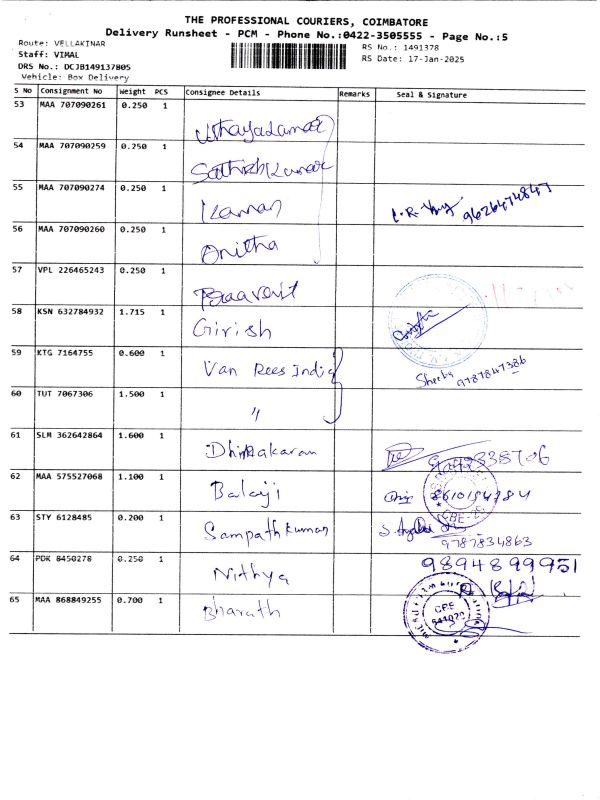 THE PROFESSIONAL COURIERS, COIMBATORE
Delivery Runsheet - PCM - Phone No.:0422-3505555 - Page No.:5
Route: VELLAKINAR
RS No.: 1491378
Staff: VIMAL
RS Date: 17-Jan-2025
DRS No.: DCJB149137805
Vehicle: Box Delivery
S No Consignment No Weight PCS Consignee Details Remarks Seal & Signature
53 MAA 707090261 0.250 1
54 MAA 707090259 0.250 1 Sathish Kumar
55 MAA 707090274 0.250 1 9626474847
56 MAA 707090260 0.250 1 Anitha
57 VPL 226465243 0.250 1
58 KSN 632784932 1.715 1 Girish
59 KTG 7164755 0.600 1 Van Rees India 9787847386
60 TUT 7067306 1.500 1 〃
61 SLM 362642864 1.600 1
62 MAA 575527068 1.100 1 Balaji
63 STY 6128485 0.200 1 Sampath Kumar 9787834863
64 PDK 8450278 0.250 1 Nithya 9894899951
65 MAA 868849255 0.700 1 Bharath